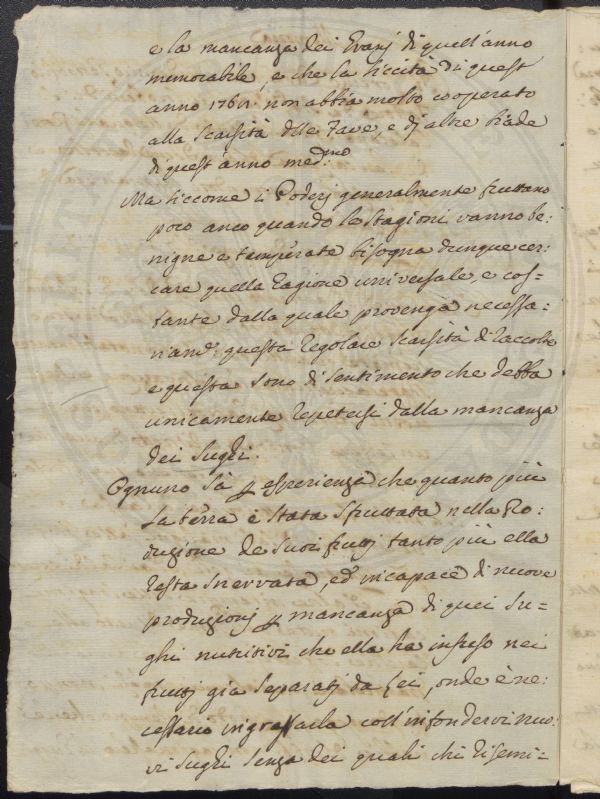 e la mancanza dei Grani di quell'anno
memorabile, e che la siccità di quest
anno 1761 non abbia molto cooperato
alla scarsità delle Fave, e di altre biade
di quest'anno med:mo
Ma siccome i Poderj generalmente fruttano
poco anco quando le Stagioni vanno be:
nigne e temperate bisogna dunque cer:
care quella Ragione universale, e cos-
tante dalla quale provenga necessa:
riam: questa regolare scarsità di raccolte
e questa sono di sentimento che debba
unicamente repetersi dalla mancanza
dei Sughi.
Ognuno sà p esperienza che quanto più
la terra è stata sfruttata nella Pro:
duzione de suoi fruttj tanto più ella
resta snervata, ed incapace di nuove
produzionj p mancanza di quei su-
ghi nutritivi che ella ha infuso nei
fruttj già separatj da Lei, onde è ne:
cessario ingrassarla coll'infondervi nuo:
vi Sughi senza dei quali chi risemi=